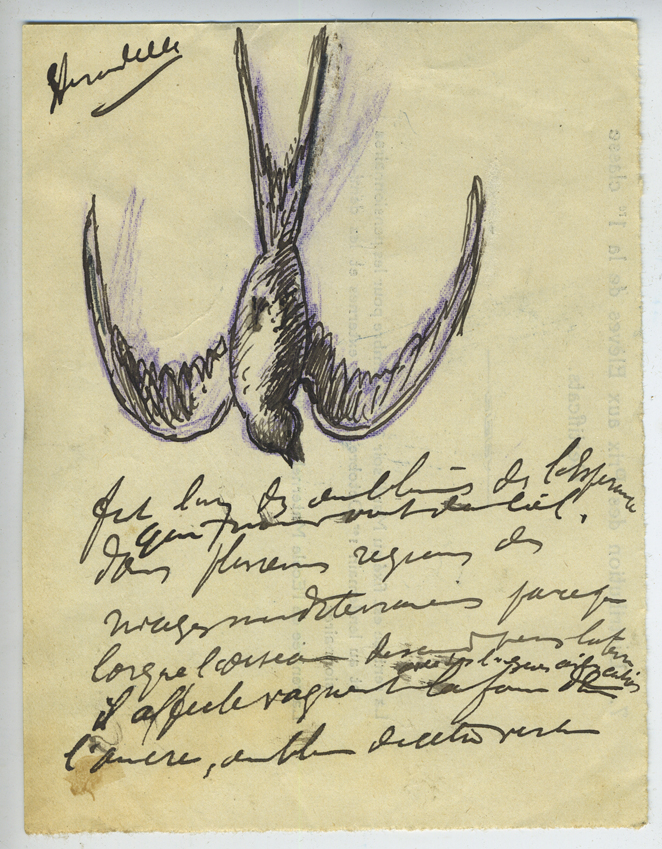 Hirondelle
est l'un des emblèmes de l'Espérance
qui nous vient du ciel.
Dans plusieurs régions des
rivages méditerranéens parce que
lorsque l'oiseau descend vers la terre
il affecte vaguement la forme de
l'ancre, emblème de cette vertu